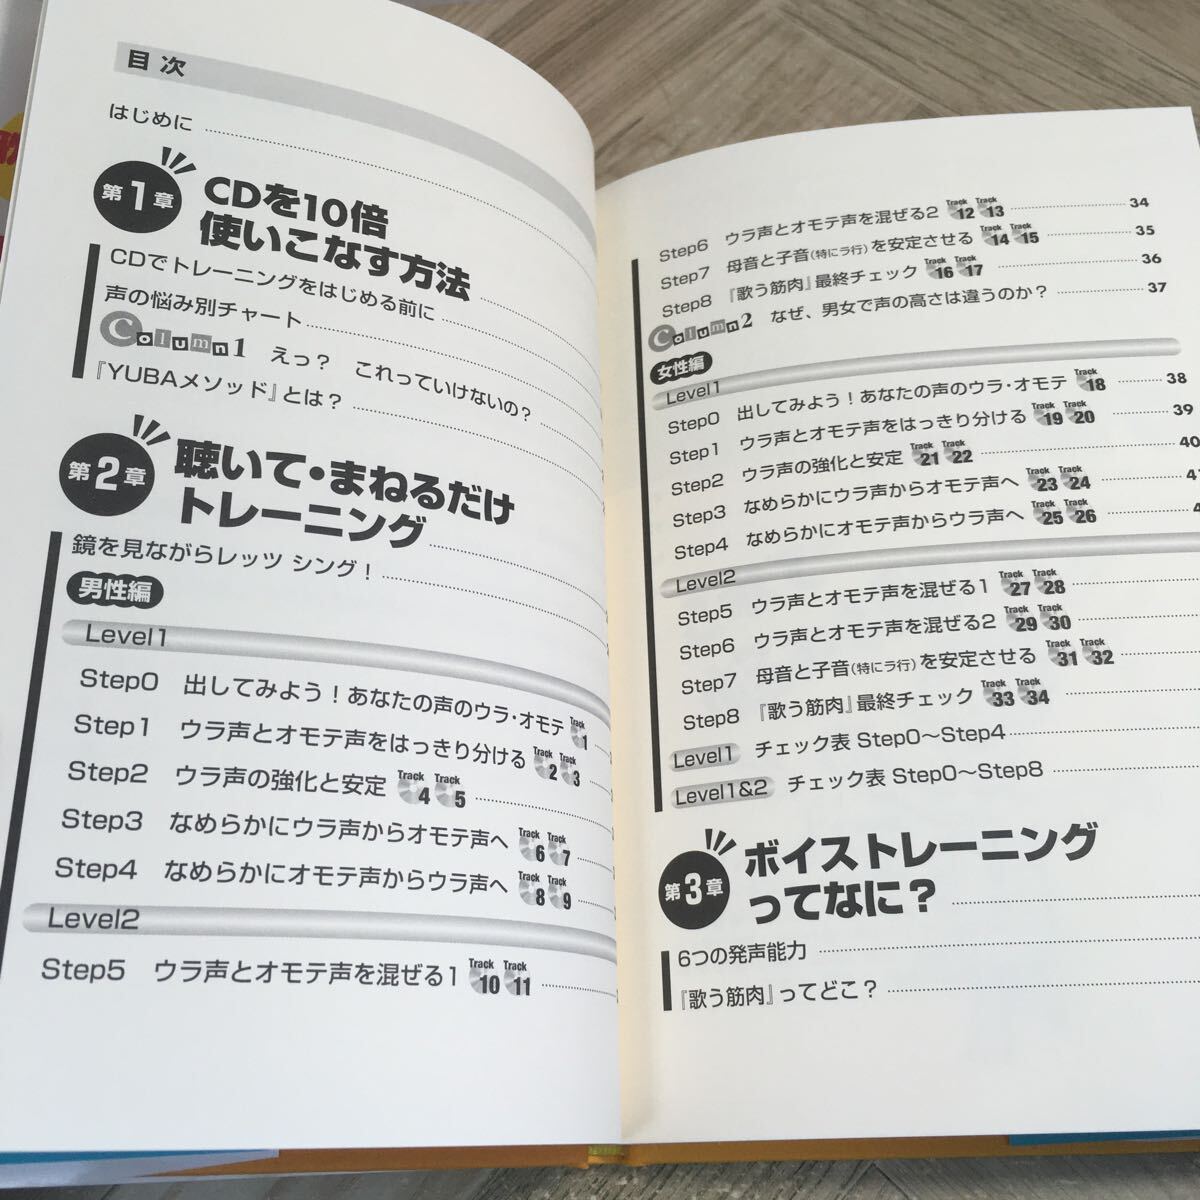 目次
はじめに
第1章
CDを10倍
使いこなす方法
CDでトレーニングをはじめる前に
声の悩み別チャート
Column1 えっ？ これっていけないの？
『YUBAメソッド』とは？
第2章
聴いて・まねるだけ
トレーニング
鏡を見ながらレッツ シング！
男性編
Level1
Step0 出してみよう！あなたの声のウラ・オモテ Track 1
Step1 ウラ声とオモテ声をはっきり分ける Track 2 Track 3
Step2 ウラ声の強化と安定 Track 4 Track 5
Step3 なめらかにウラ声からオモテ声へ Track 6 Track 7
Step4 なめらかにオモテ声からウラ声へ Track 8 Track 9
Level2
Step5 ウラ声とオモテ声を混ぜる1 Track 10 Track 11
Step6 ウラ声とオモテ声を混ぜる2 Track 12 Track 13 34
Step7 母音と子音(特にラ行)を安定させる Track 14 Track 15 35
Step8 『歌う筋肉』最終チェック Track 16 Track 17 36
Column2 なぜ、男女で声の高さは違うのか？ 37
女性編
Level1
Step0 出してみよう！あなたの声のウラ・オモテ Track 18 38
Step1 ウラ声とオモテ声をはっきり分ける Track 19 Track 20 39
Step2 ウラ声の強化と安定 Track 21 Track 22 40
Step3 なめらかにウラ声からオモテ声へ Track 23 Track 24
Step4 なめらかにオモテ声からウラ声へ Track 25 Track 26
Level2
Step5 ウラ声とオモテ声を混ぜる1 Track 27 Track 28
Step6 ウラ声とオモテ声を混ぜる2 Track 29 Track 30
Step7 母音と子音(特にラ行)を安定させる Track 31 Track 32
Step8 『歌う筋肉』最終チェック Track 33 Track 34
Level1 チェック表 Step0～Step4
Level1&2 チェック表 Step0～Step8
第3章
ボイストレーニング
ってなに？
6つの発声能力
『歌う筋肉』ってどこ？